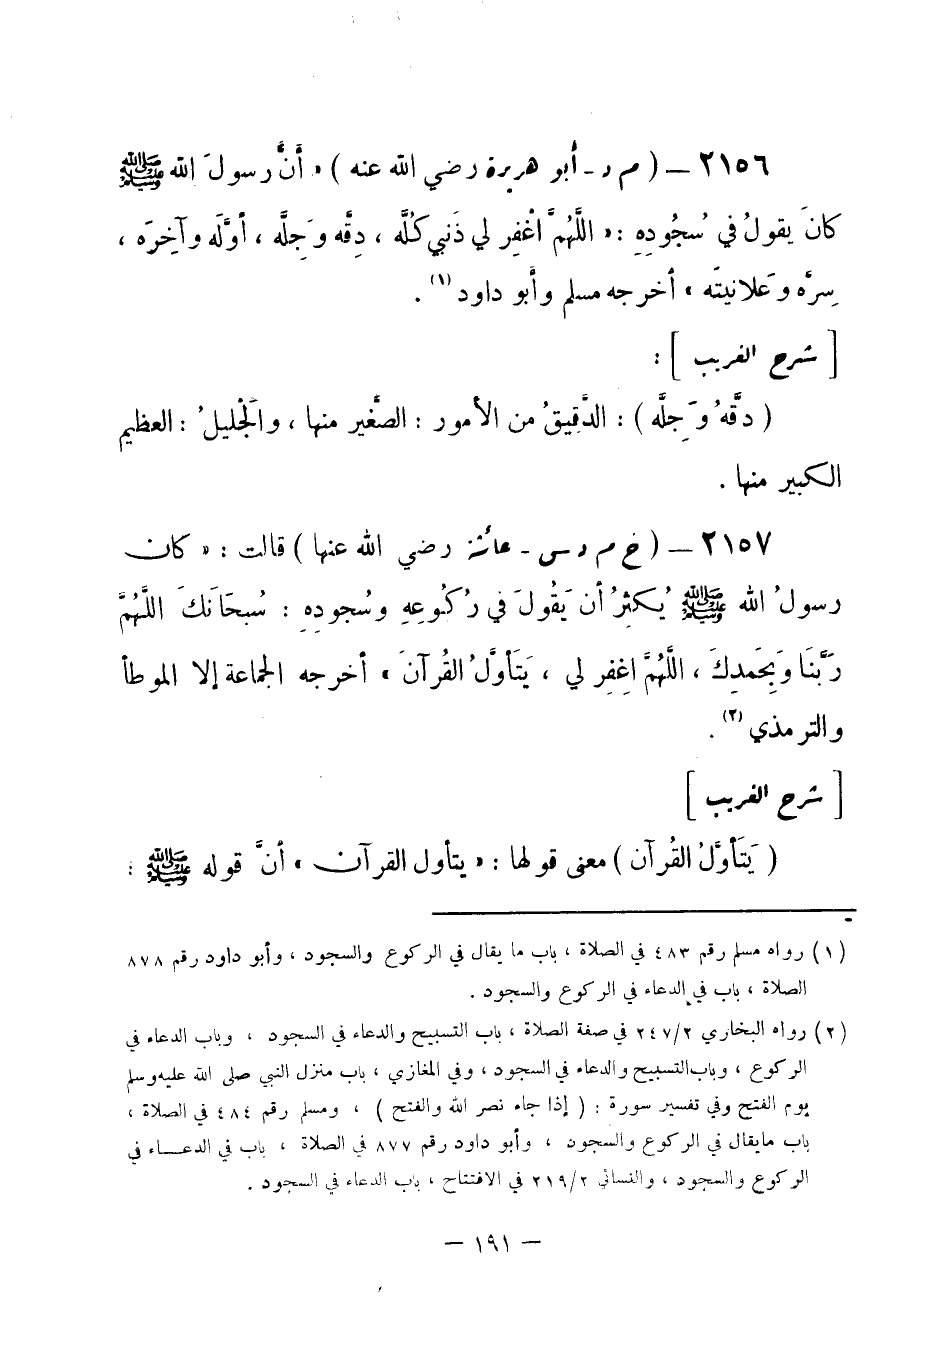 ٢١٥٦ ـ ( م د ـ أبو هريرة رضي الله عنه ) « أَنَّ رسولَ الله ﷺ
كانَ يقولُ في سُجُودِهِ : « اللَّهُمَّ اغْفِر لي ذَنبي كُلَّه ، دِقَّه وَجِلَّه ، أوَّلَه وآخِرَه ،
سِرَّه وعَلانيتَه » أخرجه مسلم وأبو داود (١) .
[ شرح الغريب ] :
( دقَّهُ وَجِلَّه ) : الدَّقِيقُ من الأمور : الصَّغير منها ، والجْليلُ : العظيم
الكبير منها .
٢١٥٧ ـ ( خ م د س ـ عائشة رضي الله عنها ) قالت : « كان
رسولُ الله ﷺ يُكثِرُ أن يَقُولَ في رُكُوعِهِ وسُجودِهِ : سُبحَانَكَ اللَّهُمَّ
رَبَّنَا وَبِحَمدِكَ ، اللَّهُمَّ اغِفِر لي ، يَتَأوَّلُ القُرآنَ » أخرجه الجماعة إلا الموطأ
والترمذي (٢) .
[ شرح الغريب ]
( يَتَأوَّلُ القُرآن ) معنى قولها : « يتأول القرآن » أنَّ قوله ﷺ :
(١) رواه مسلم رقم ٤٨٣ في الصلاة ، باب ما يقال في الركوع والسجود ، وأبو داود رقم ٨٧٨
الصلاة ، باب في الدعاء في الركوع والسجود .
(٢) رواه البخاري ٢٤٧/٢ في صفة الصلاة ، باب التسبيح والدعاء في السجود ، وباب الدعاء في
الركوع ، وباب التسبيح والدعاء في السجود ، وفي المغازي ، باب منزل النبي صلى الله عليه وسلم
يوم الفتح وفي تفسير سورة : ( إذا جاء نصر الله والفتح ) ، ومسلم رقم ٤٨٤ في الصلاة ،
باب مايقال في الركوع والسجود ، وأبو داود رقم ٨٧٧ في الصلاة ، باب في الدعـاء في
الركوع والسجود ، والنسائي ٢١٩/٢ في الافتتاح ، باب الدعاء في السجود .
ـ ١٩١ ـ